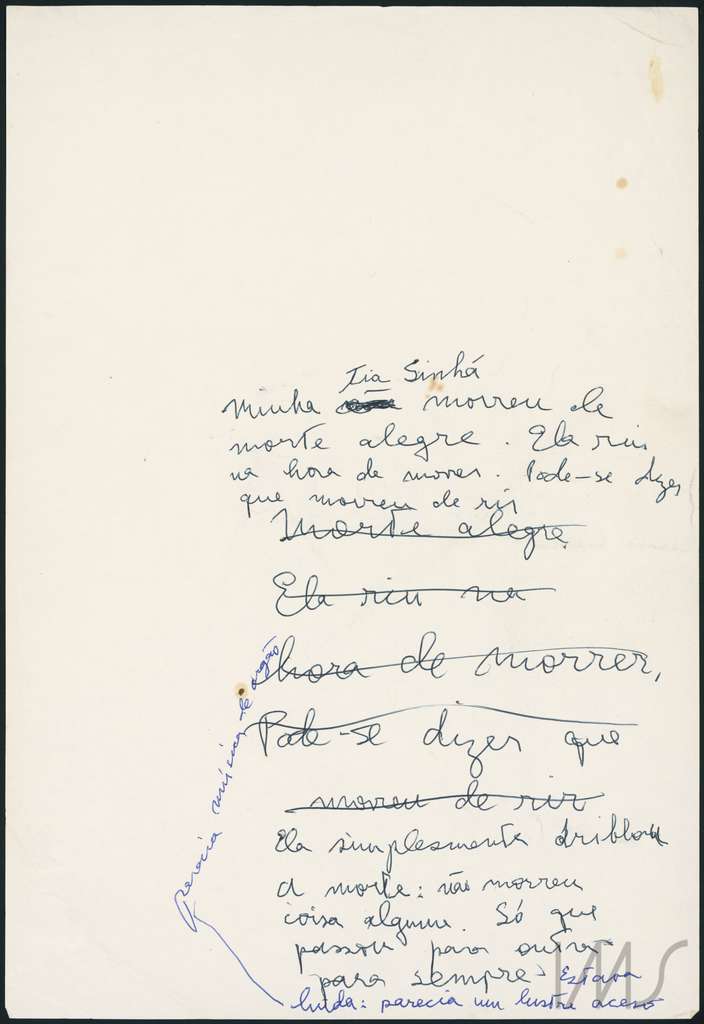 Tia Sinhá
Minha morreu de
morte alegre. Ela riu
na hora de morrer. Pode-se dizer
que morreu de rir
Morte alegre.
Ela riu na
hora de morrer.
Pode-se dizer que
morreu de rir
Ela simplesmente driblou
a morte: não morreu
coisa alguma. Só que
passou para outra
para sempre. Estava
linda: parecia um lustre aceso
parecia música de orgão
IMS